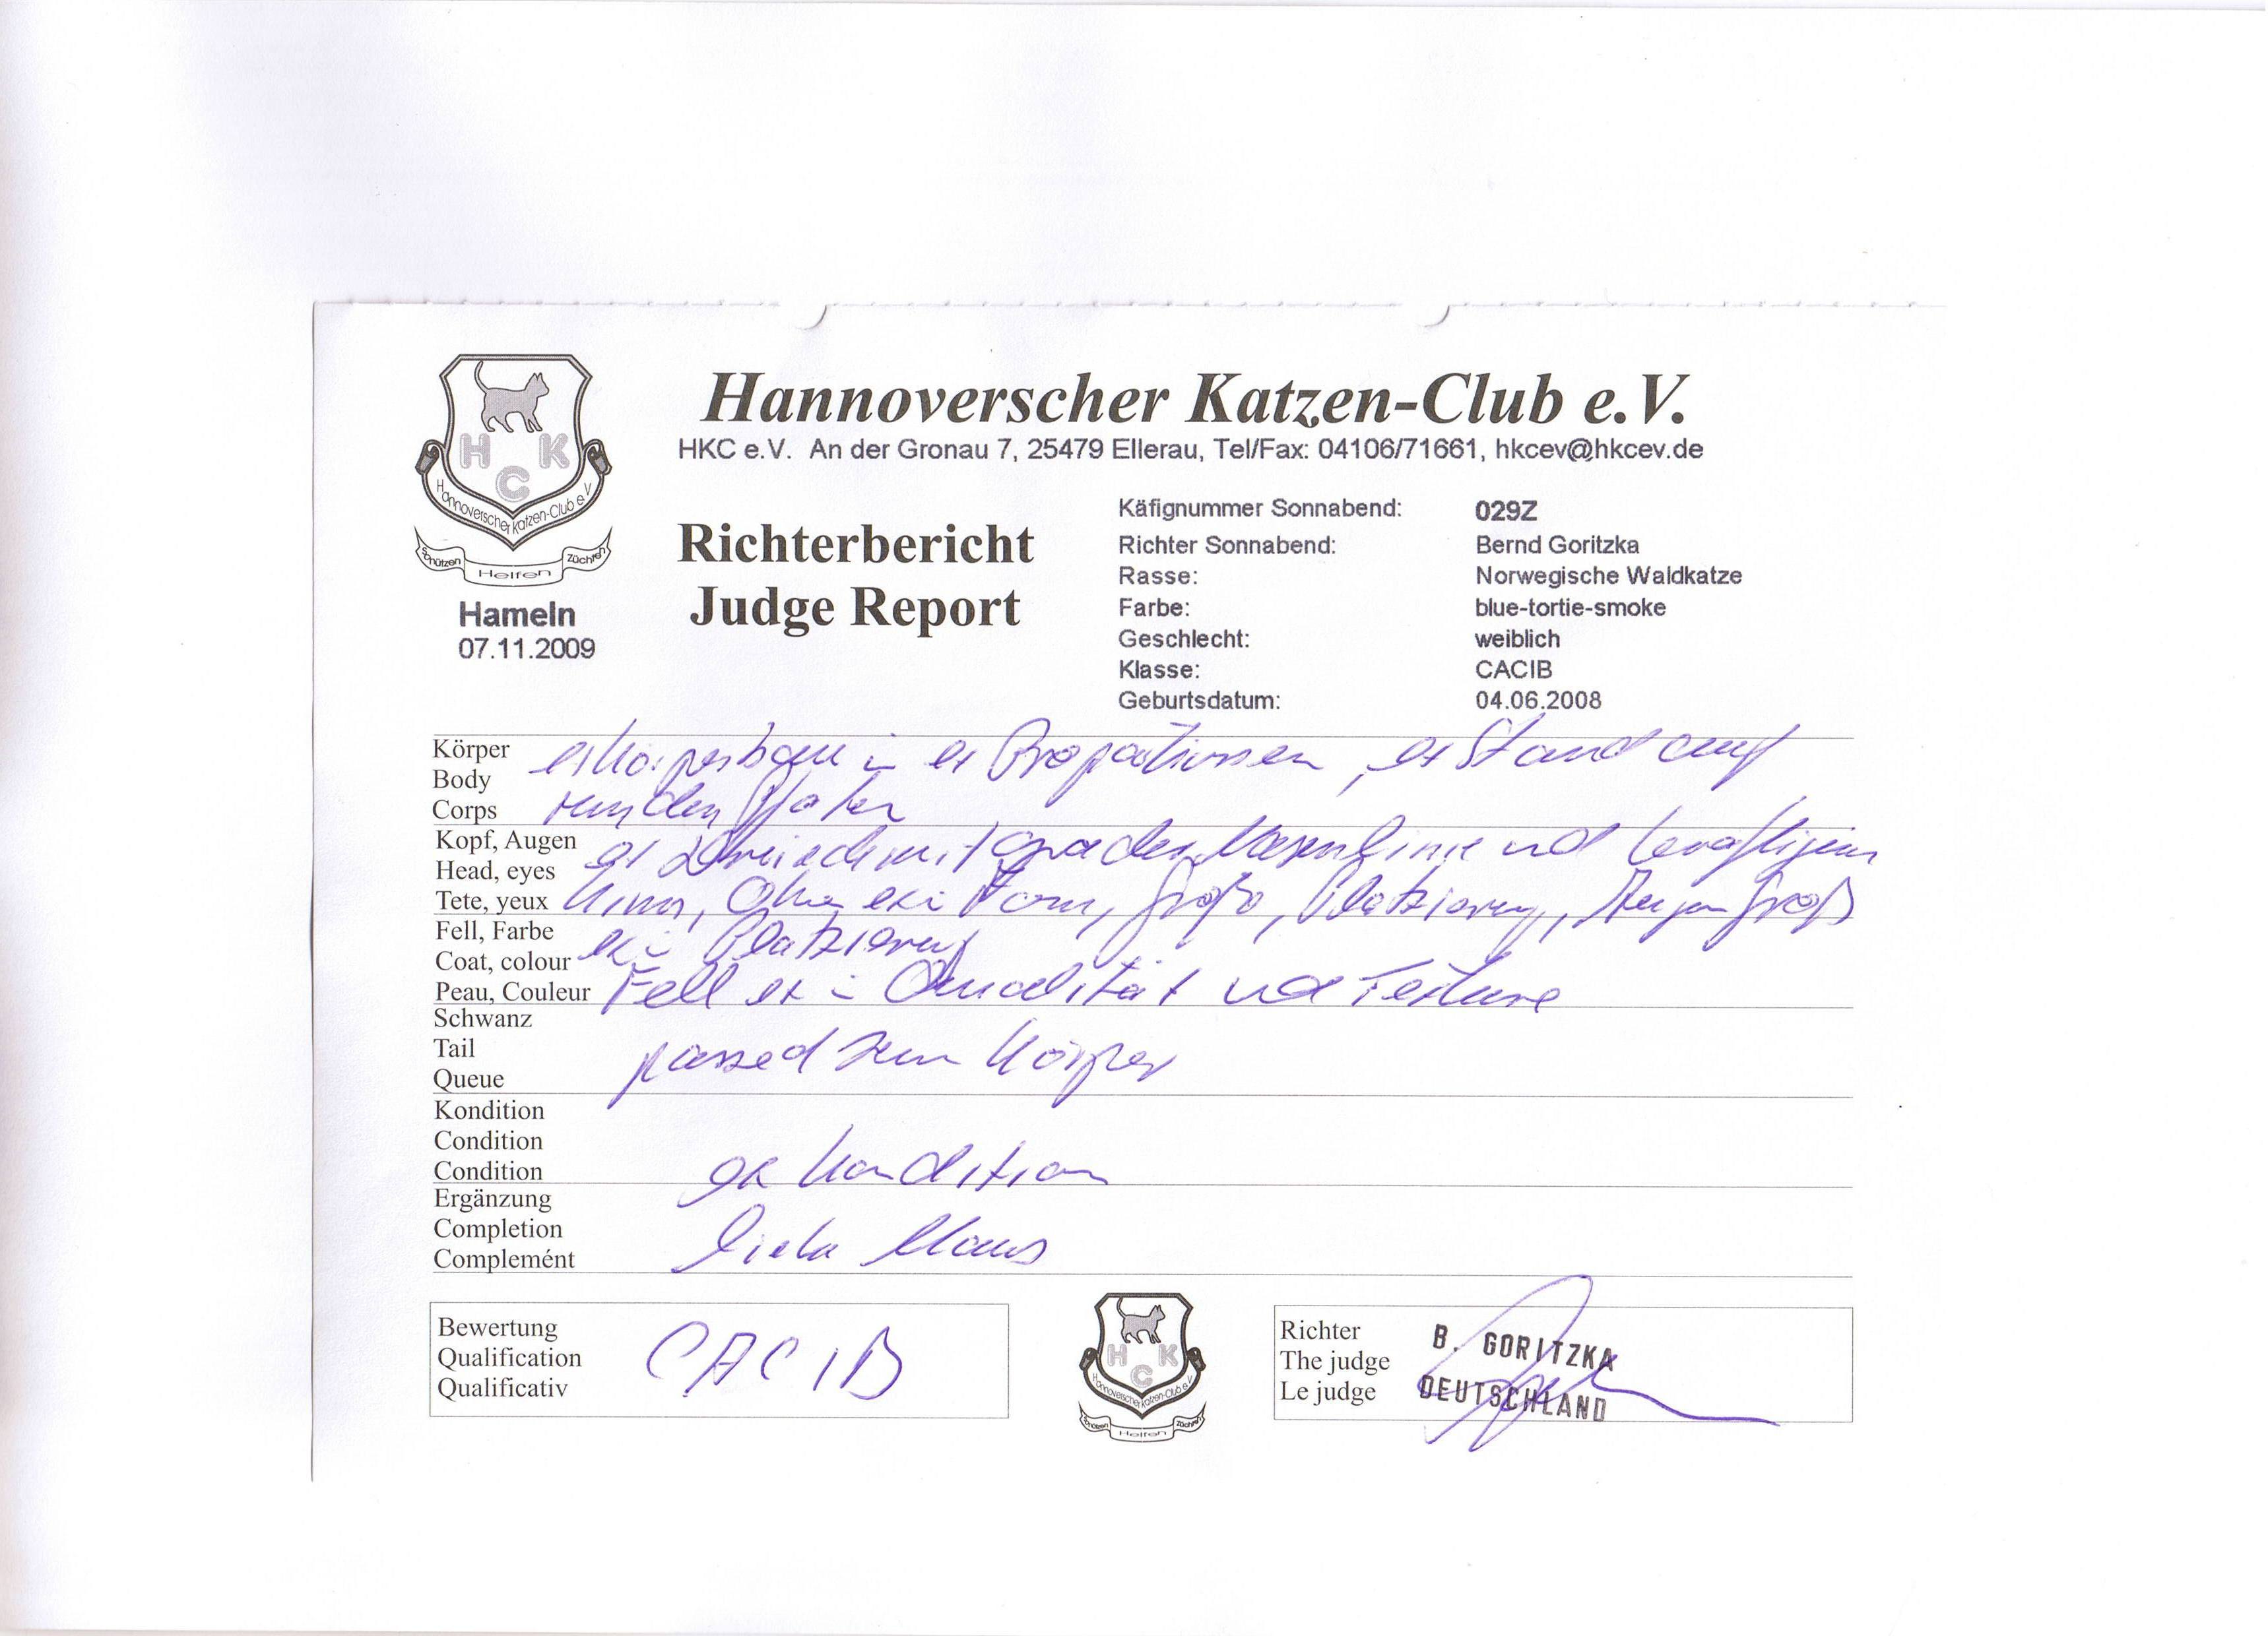 H K C
Hannoverscher Katzen-Club e.V.
Schützen Helfen Züchten
Hannoverscher Katzen-Club e.V.
HKC e.V. An der Gronau 7, 25479 Ellerau, Tel/Fax: 04106/71661, hkcev@hkcev.de
Hameln
07.11.2009
Richterbericht
Judge Report
Käfignummer Sonnabend: 029Z
Richter Sonnabend: Bernd Goritzka
Rasse: Norwegische Waldkatze
Farbe: blue-tortie-smoke
Geschlecht: weiblich
Klasse: CACIB
Geburtsdatum: 04.06.2008
Körper
Body
Corps
ex Körperbau in ex Propationen, ex Stand auf
runden Pfoten
Kopf, Augen
Head, eyes
Tete, yeux
ex Dreieck mit grader Nasenlinie und kräftigem
Kinn, Ohren ex i Form, Größe, Platzierung, Augen groß
Fell, Farbe
Coat, colour
Peau, Couleur
ex i Platzierung
Fell ex i Qualität und Texture
Schwanz
Tail
Queue
passed zum Körper
Kondition
Condition
Condition
ex Kondition
Ergänzung
Completion
Complemént
liebe Maus
Bewertung
Qualification
Qualificativ
CACIB
H K C
Hannoverscher Katzen-Club e.V.
Schützen Helfen Züchten
Richter
The judge
Le judge
B. GORITZKA
DEUTSCHLAND